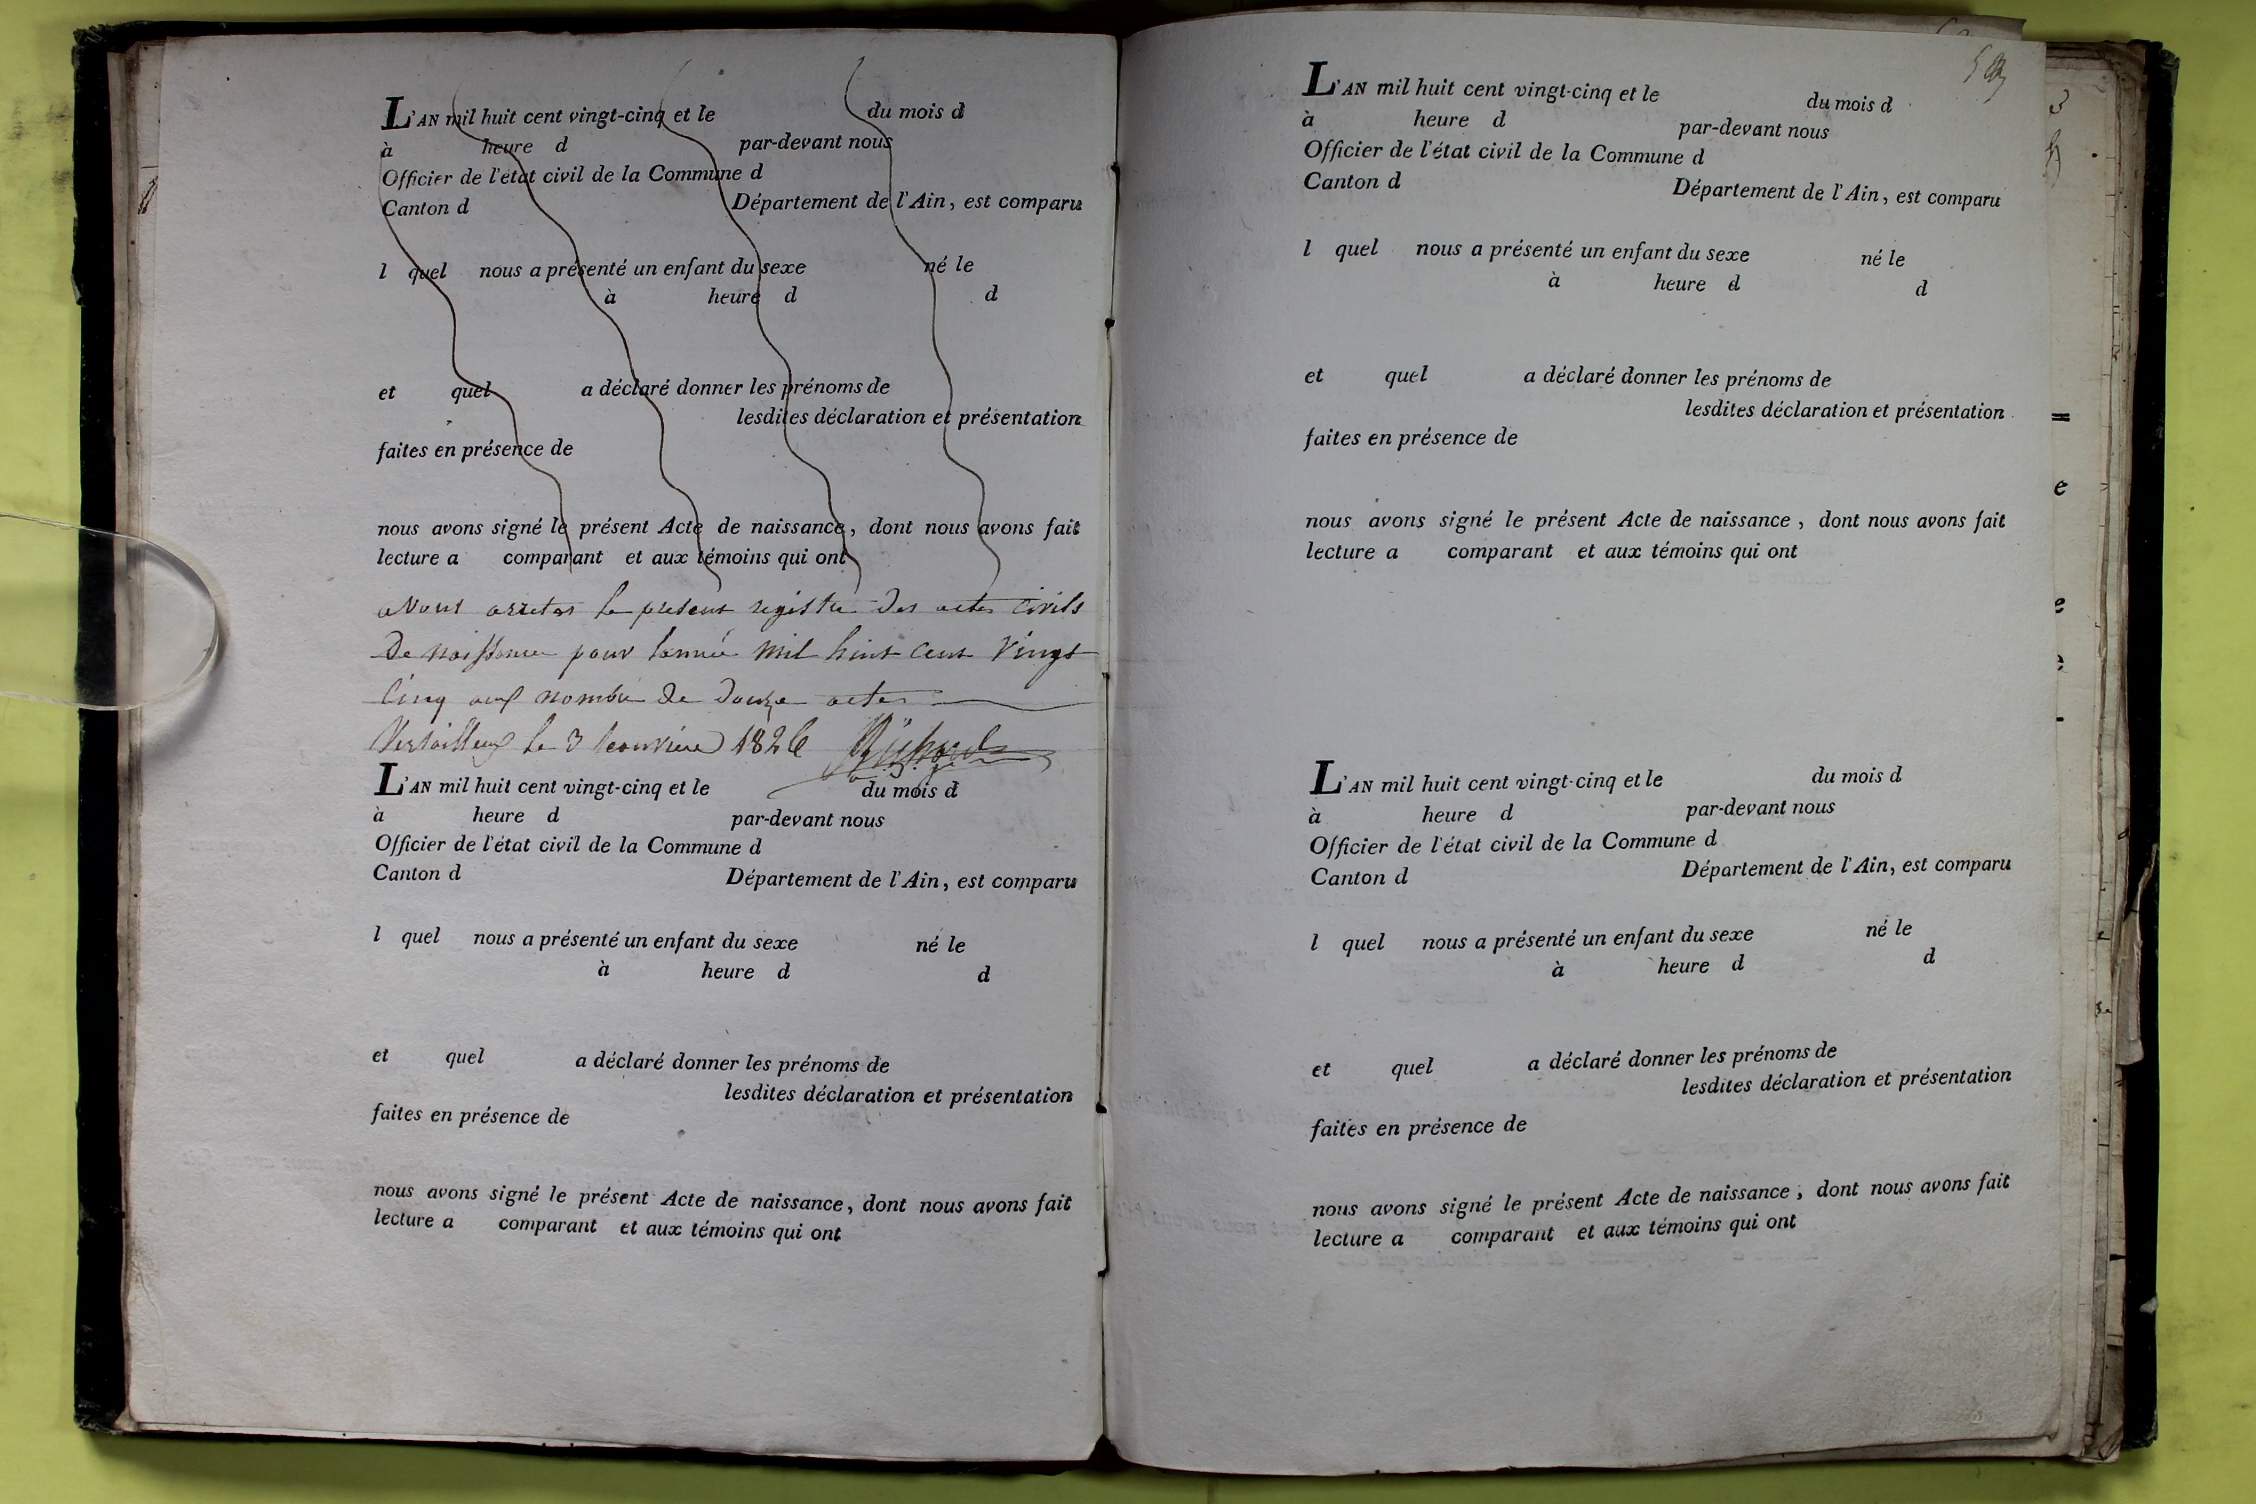 L'AN mil huit cent vingt-cinq et le du mois d
à heure d par-devant nous
Officier de l'état civil de la Commune d
Canton d Département de l'Ain, est comparu
l quel nous a présenté un enfant du sexe né le
à heure d d
et quel a déclaré donner les prénoms de
lesdites déclaration et présentation
faites en présence de
nous avons signé le présent Acte de naissance, dont nous avons fait
lecture a comparant et aux témoins qui ont
avons arretes le present registre des actes civils
de naissance pour lannée mil huit cent vingt
cinq au nombre de douze actes
Versailleux le 3 1826
L'AN mil huit cent vingt-cinq et le du mois d
à heure d par-devant nous
Officier de l'état civil de la Commune d
Canton d Département de l'Ain, est comparu
l quel nous a présenté un enfant du sexe né le
à heure d d
et quel a déclaré donner les prénoms de
lesdites déclaration et présentation
faites en présence de
nous avons signé le présent Acte de naissance, dont nous avons fait
lecture a comparant et aux témoins qui ont
L'AN mil huit cent vingt-cinq et le du mois d
à heure d par-devant nous
Officier de l'état civil de la Commune d
Canton d Département de l'Ain, est comparu
l quel nous a présenté un enfant du sexe né le
à heure d d
et quel a déclaré donner les prénoms de
lesdites déclaration et présentation
faites en présence de
nous avons signé le présent Acte de naissance, dont nous avons fait
lecture a comparant et aux témoins qui ont
L'AN mil huit cent vingt-cinq et le du mois d
à heure d par-devant nous
Officier de l'état civil de la Commune d
Canton d Département de l'Ain, est comparu
l quel nous a présenté un enfant du sexe né le
à heure d d
et quel a déclaré donner les prénoms de
lesdites déclaration et présentation
faites en présence de
nous avons signé le présent Acte de naissance, dont nous avons fait
lecture a comparant et aux témoins qui ont